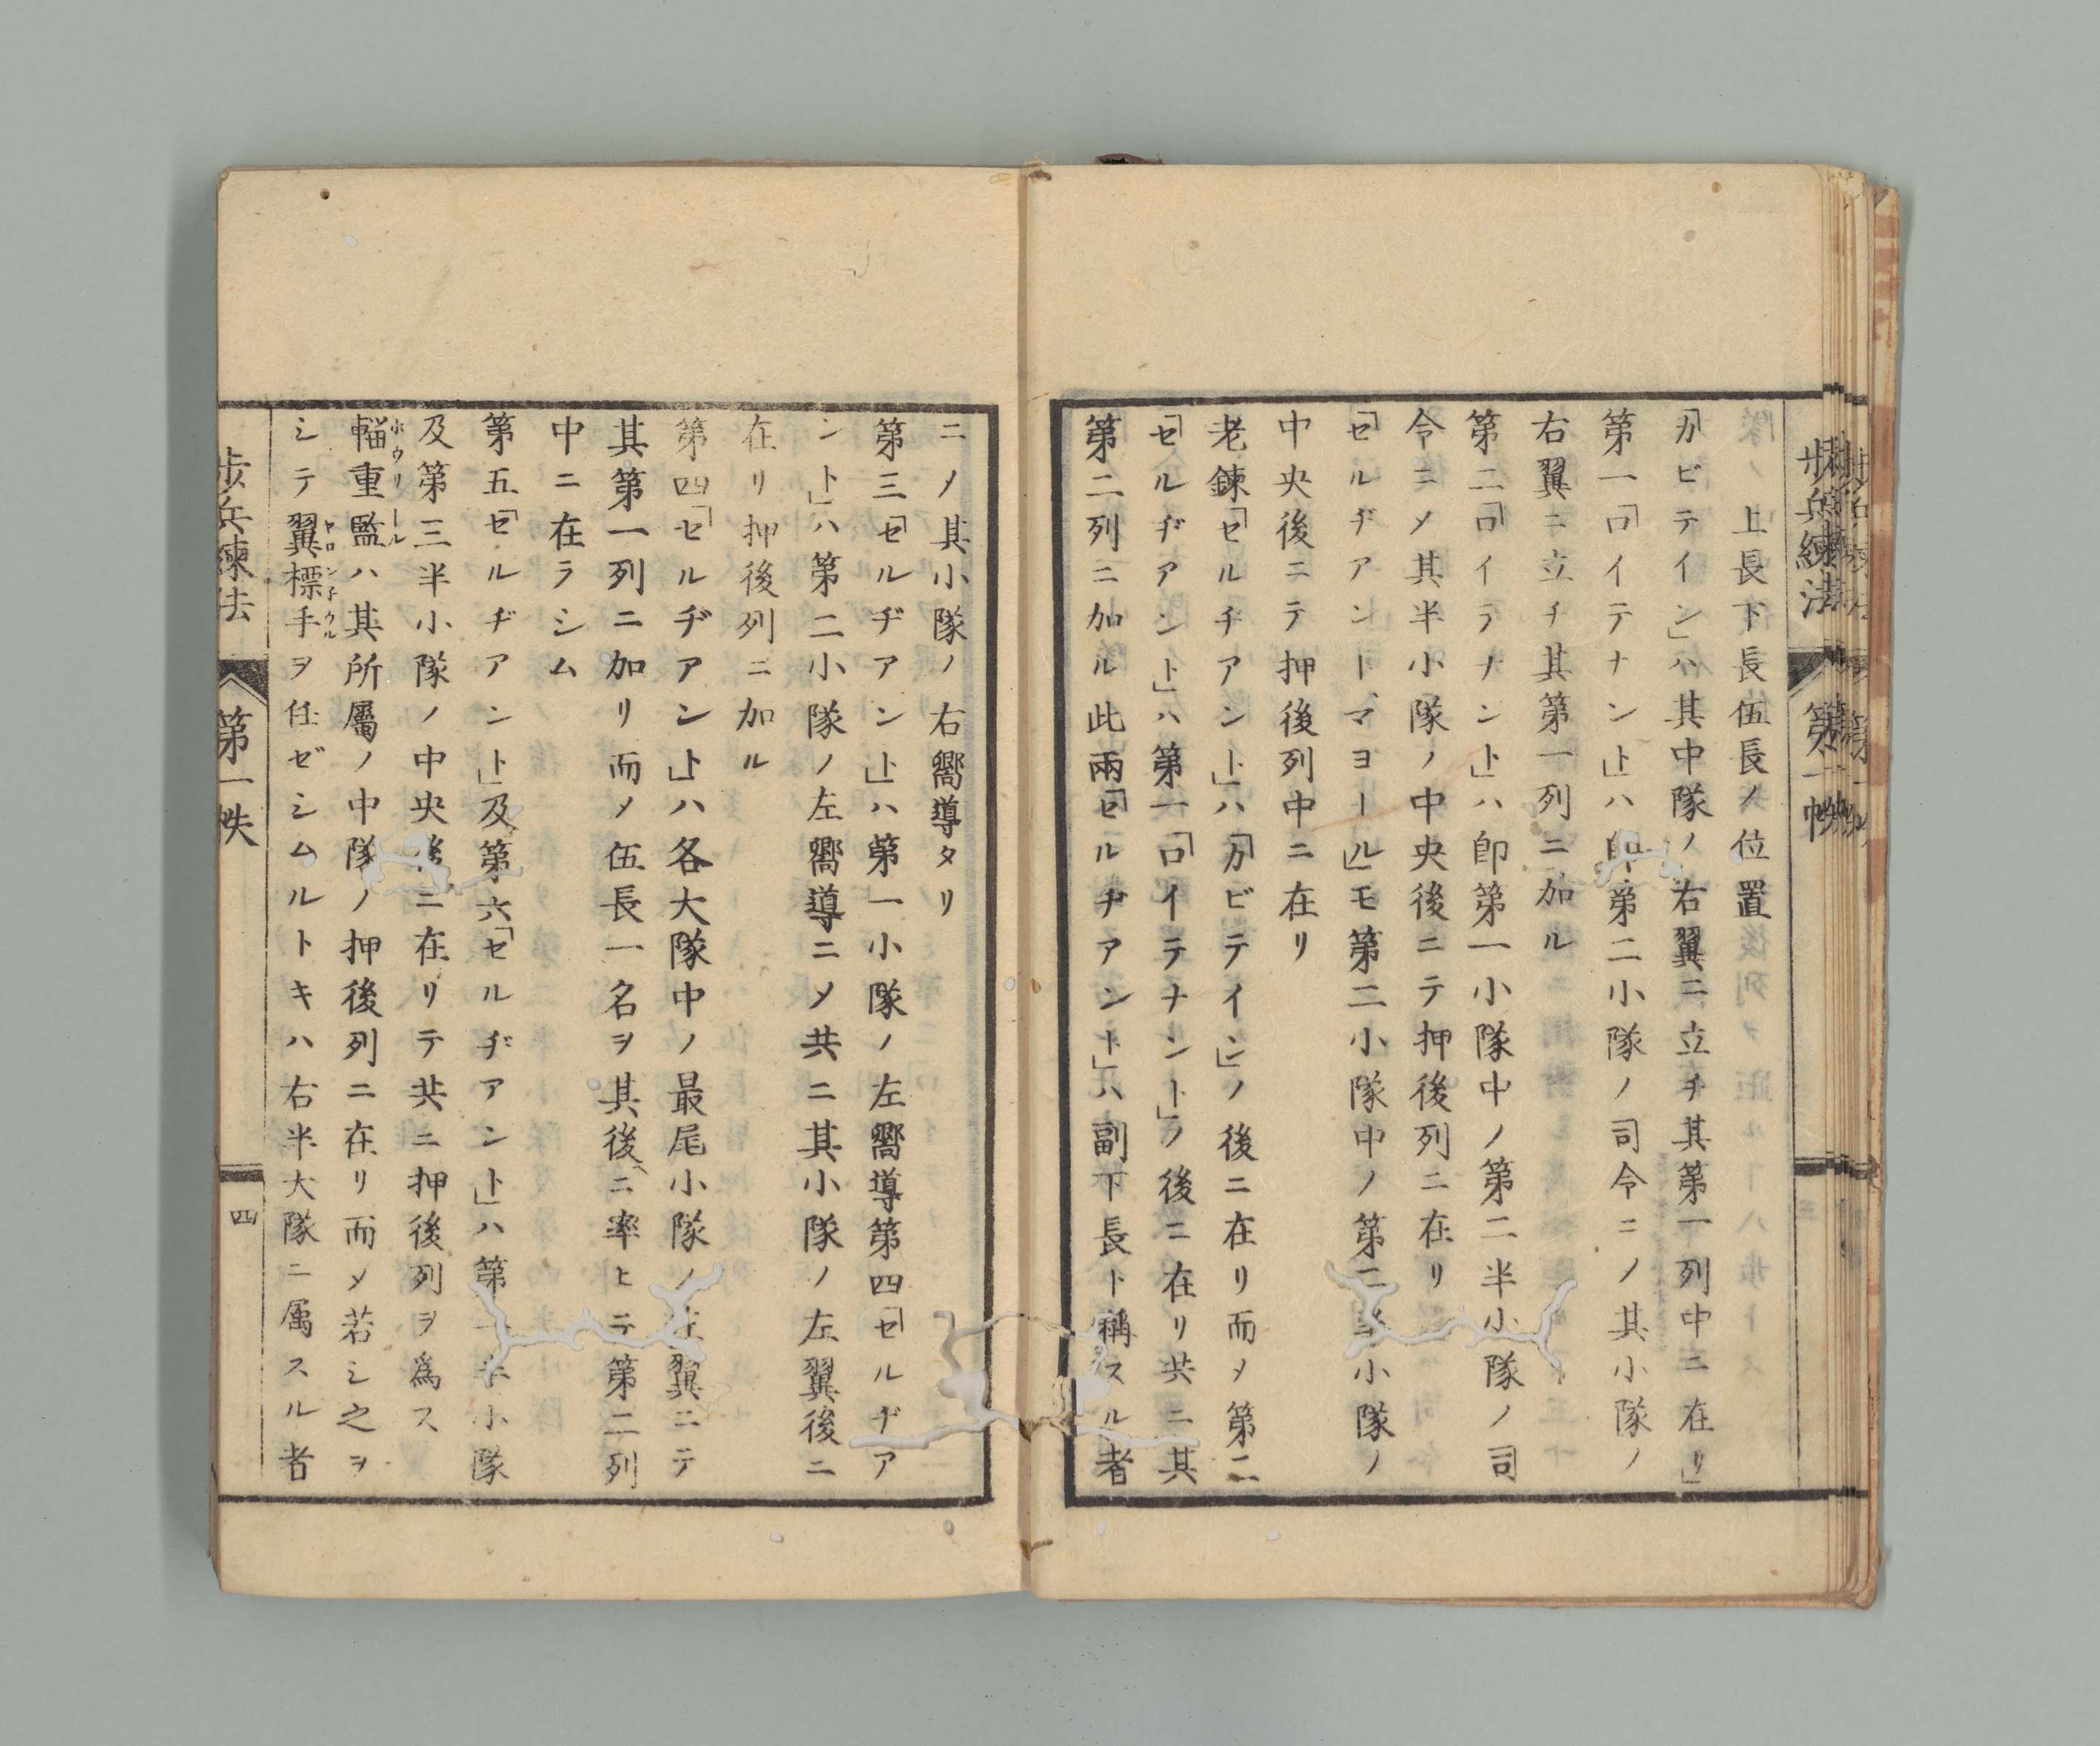 隊ノ上長下長伍長ノ位置
「カビテイン」ハ其中隊ノ右翼ニ立チ其第一列中ニ在リ」
第一「ロイテナント」ハ即第二小隊ノ司令ニノ其小隊ノ
右翼ニ立チ其第一列ニ加ル
第二「ロイテナント」ハ即第一小隊中ノ第二半小隊ノ司
令ニメ其半小隊ノ中央後ニテ押後列ニ在リ
「セルヂアントマヨール」モ第二小隊中ノ第二半小隊ノ
中央後ニテ押後列中ニ在リ
老錬「セルチアント」ハ「カビテイン」ノ後ニ在リ而メ第二
「セルヂアント」ハ第一「ロイテナント」ノ後ニ在リ共ニ其
第二列ニ加ル此兩「セルヂアント」ハ副下長ト稱スル者
ニノ其小隊ノ右嚮導タリ
第三「セルヂアント」ハ第一小隊ノ左嚮導第四「セルヂア
ント」ハ第二小隊ノ左嚮導ニメ共ニ其小隊ノ左翼後ニ
在リ押後列ニ加ル
第四「セルヂアント」ハ各大隊中ノ最尾小隊ノ左翼ニテ
其第一列ニ加リ而メ伍長一名ヲ其後ニ率ヒテ第二列
中ニ在ラシム
第五「セルヂアント」及第六「セルヂアント」ハ第一半小隊
及第三半小隊ノ中央後ニ在リテ共ニ押後列ヲ爲ス
輜重監ハ其所屬ノ中隊ノ押後列ニ在リ而メ若シ之ヲ
ホウリール
シテ翼標手ヲ任ゼシムルトキハ右半大隊ニ属スル者
歩兵練法 第一帙 四